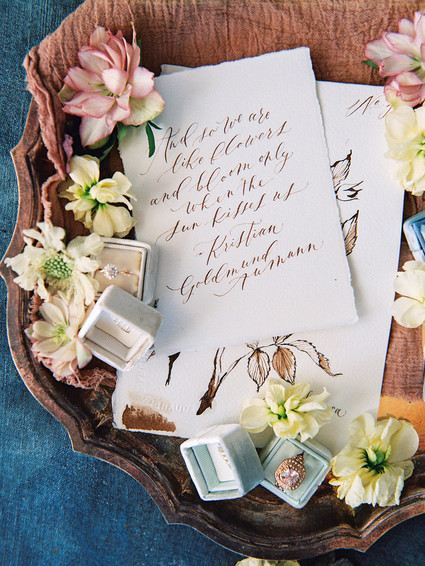 And so we are
like flowers
and bloom only
when the
sun kisses us
- Kristian
Goldmund
Aumann